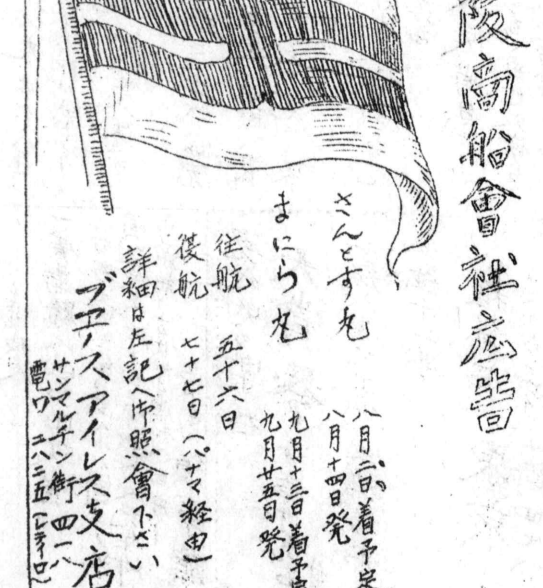 阪商船會社広告
さんとす丸
八月二日着予定
八月十四日発
まにら丸
九月十三日着予定
九月廿五日発
往航 五十六日
復航 七十七日(パナマ経由)
詳細は左記へ御照會下さい
ブエノスアイレス支店
サンマルチン街四一八
電ワ 二八二五(レティロ)